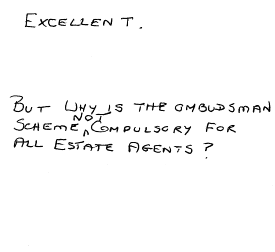 EXCELLENT.
BUT WHY IS THE OMBUDSMAN
NOT
SCHEME COMPULSORY FOR
ALL ESTATE AGENTS?